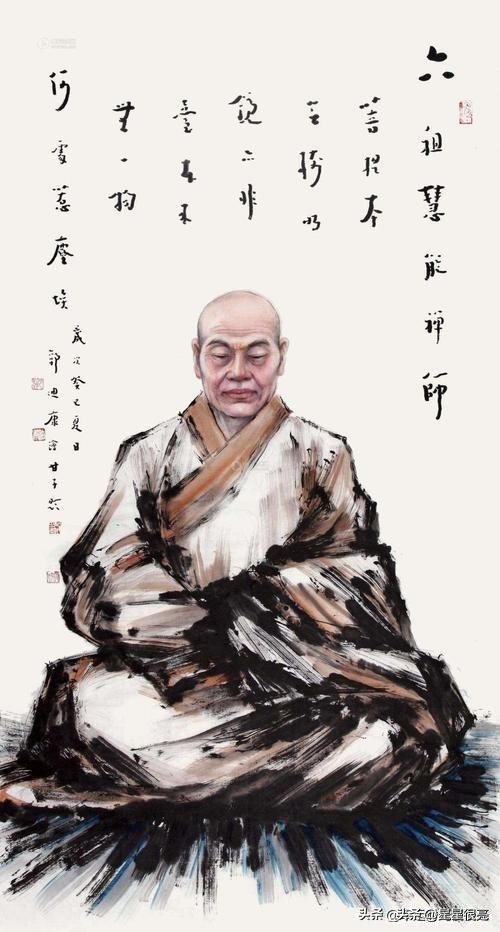 六祖慧能禅師
菩提本
无樹明
鏡亦非
臺本来
無一物
何處惹塵埃
歲次癸巳夏日
郭迪康寫
头条 @头条@星星很亮